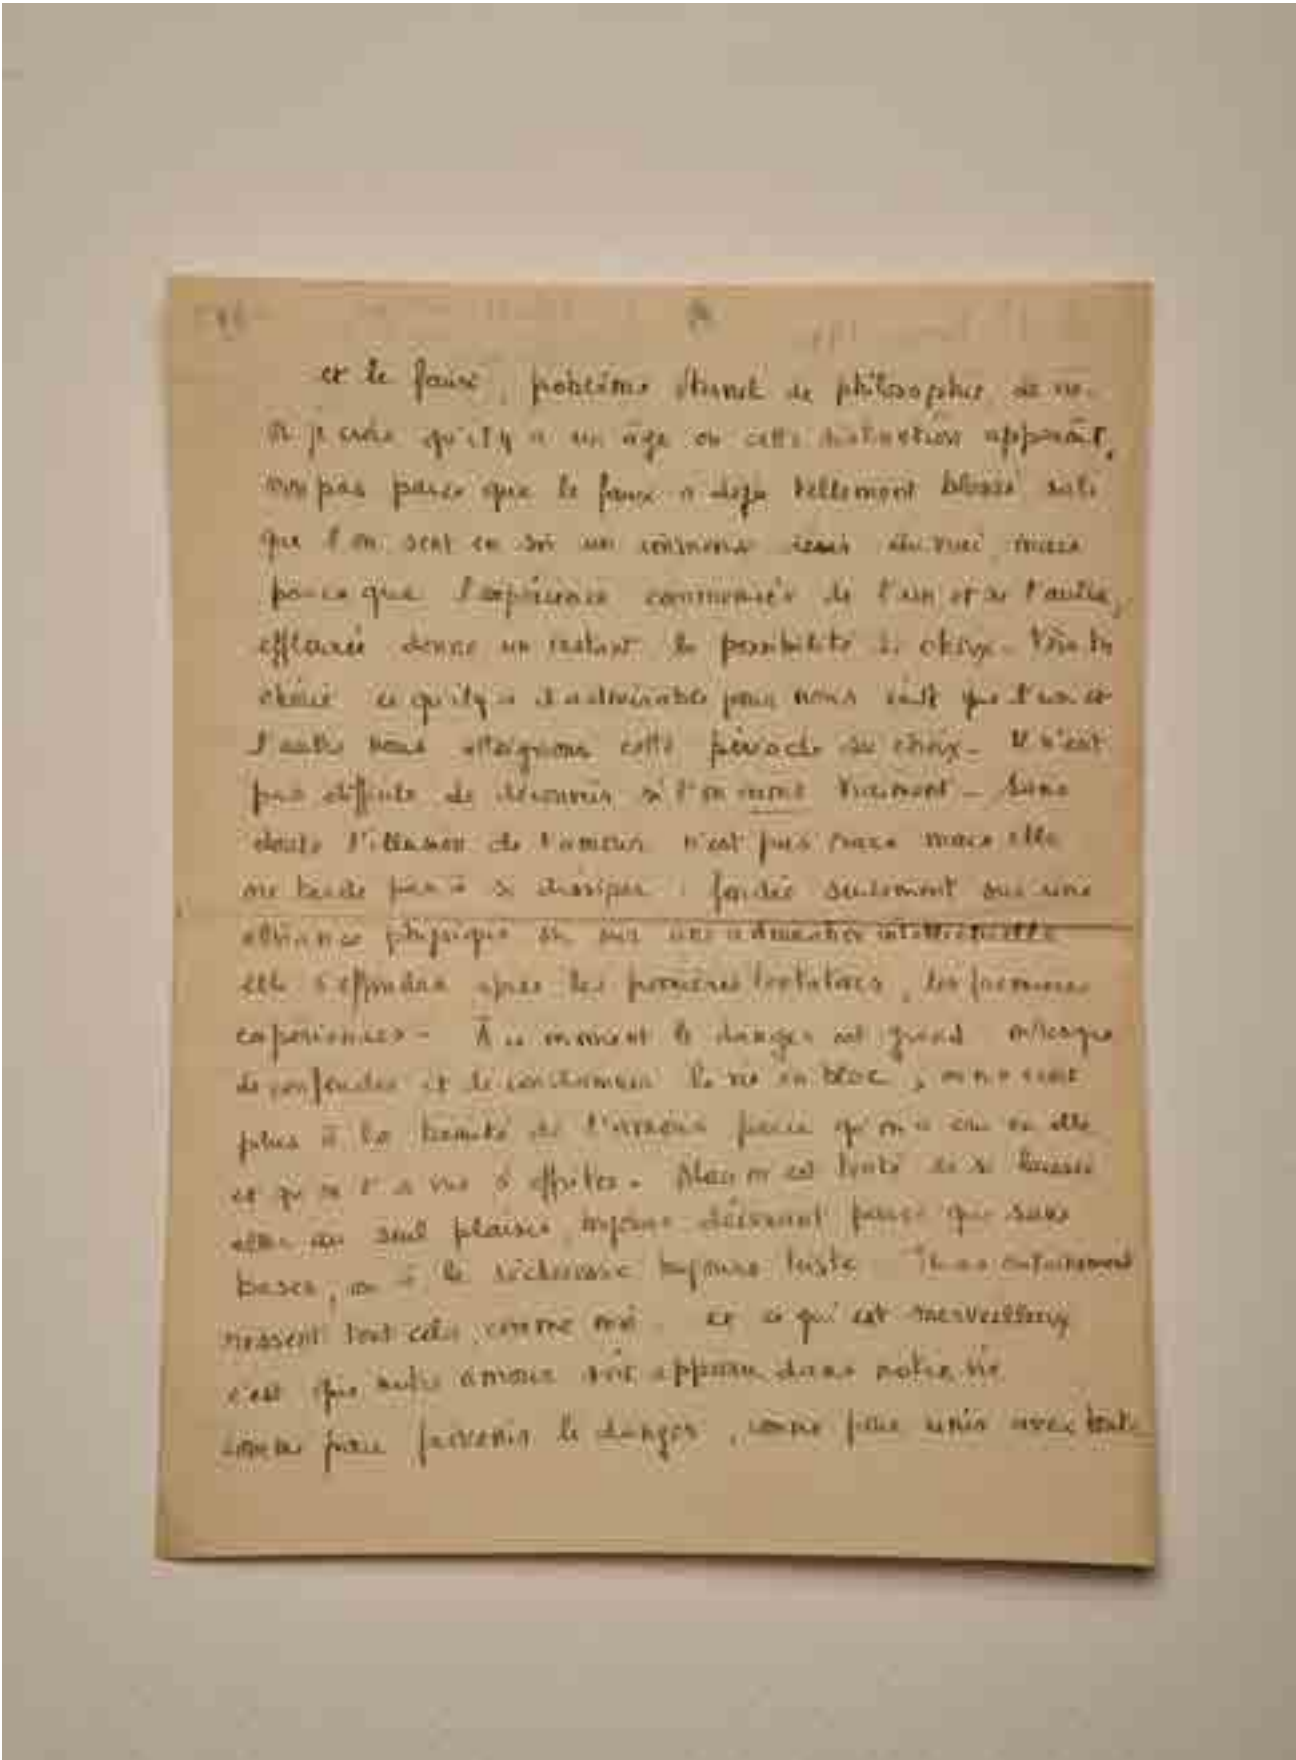 et le faux, problème éternel de philosophie, de vie.
Or je crois qu'il y a un âge où cette distinction apparaît,
non pas parce que le faux a déjà tellement blessé, sali
que l'on sent en soi un immense du vrai, mais
parce que l'expérience commencée de l'un et de l'autre,
effleurée donne un instant la possibilité de choix.
choix ce qu'il y a d'admirable pour nous c'est que l'un et
l'autre nous atteignons cette période du choix. Il n'est
pas difficile de découvrir si l'on aime vraiment. Sans
doute l'illusion de l'amour n'est pas rare mais elle
ne tarde pas à se dissiper : fondée seulement sur une
alliance physique ou sur une admiration intellectuelle
elle s'effondre après les premières tentatives, les premières
expériences. À ce moment le danger est grand : on risque
de confondre et de condamner la vie en bloc, on ne croit
plus à la beauté de l'amour parce qu'on a cru en elle
et qu'on l'a vue s'effriter. Alors on est tenté de se laisser
aller au seul plaisir, toujours décevant parce que sans
bases, ou à la sécheresse toujours triste. Tu as certainement
ressenti tout cela, comme moi. et ce qui est merveilleux
c'est que notre amour soit apparu dans notre vie
comme pour prévenir le danger, comme pour unir avec toute